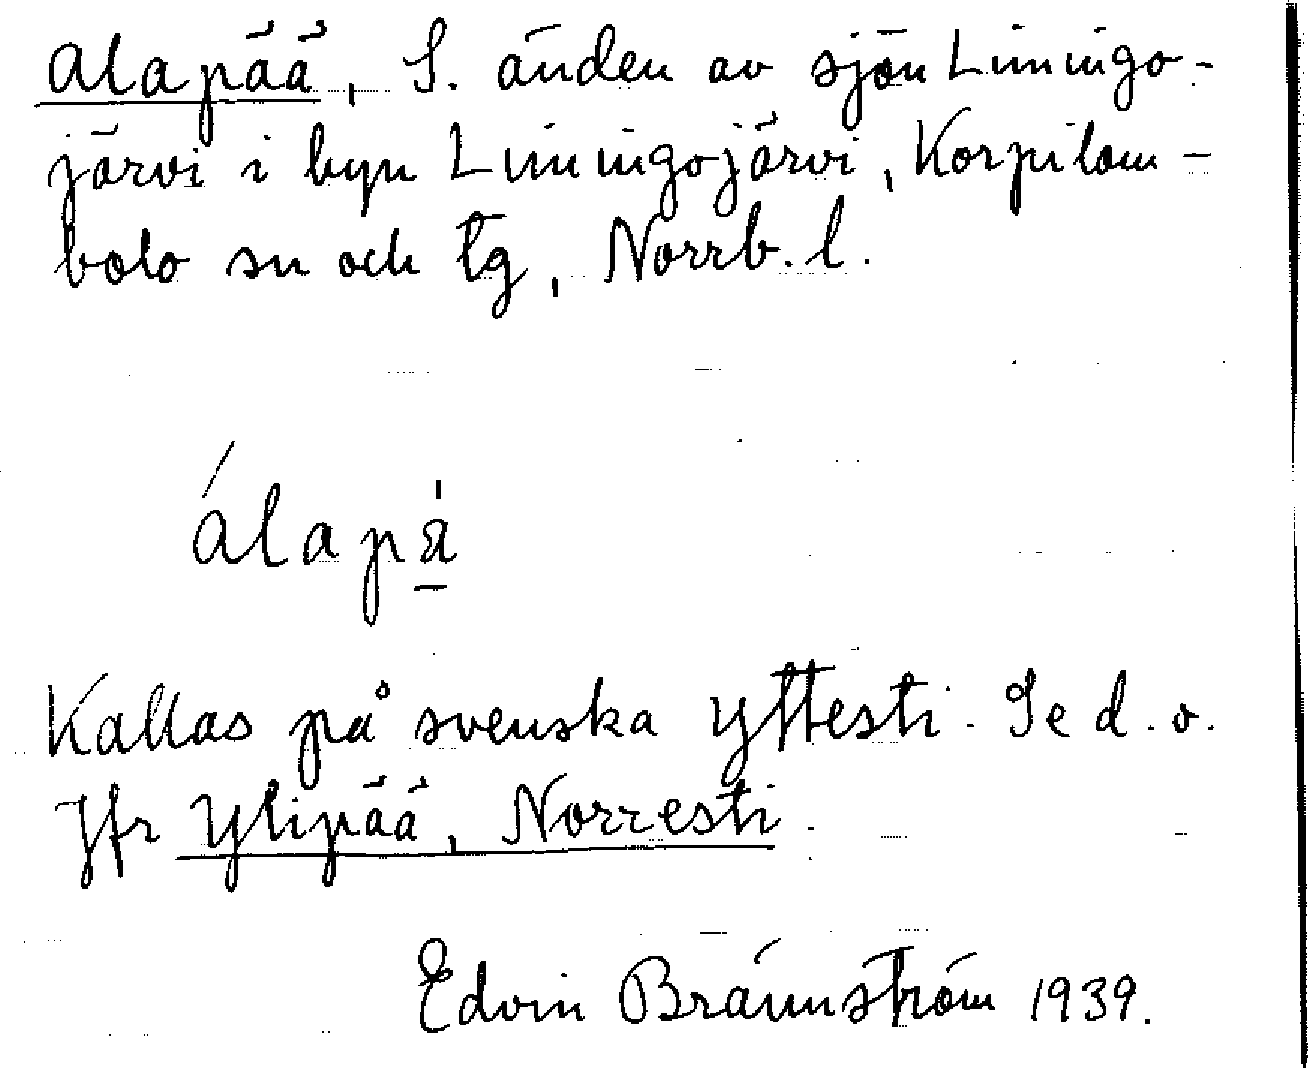 Alapää, S. änden av sjön Liiningo-
järvi i byn Liiningojärvi, Korpilom-
bolo sn och tg, Norrb. l.
álapä̀
Kallas på svenska Yttesti. Se d. o.
Jfr Ylipää, Norresti.
Edvin Brännström 1939.